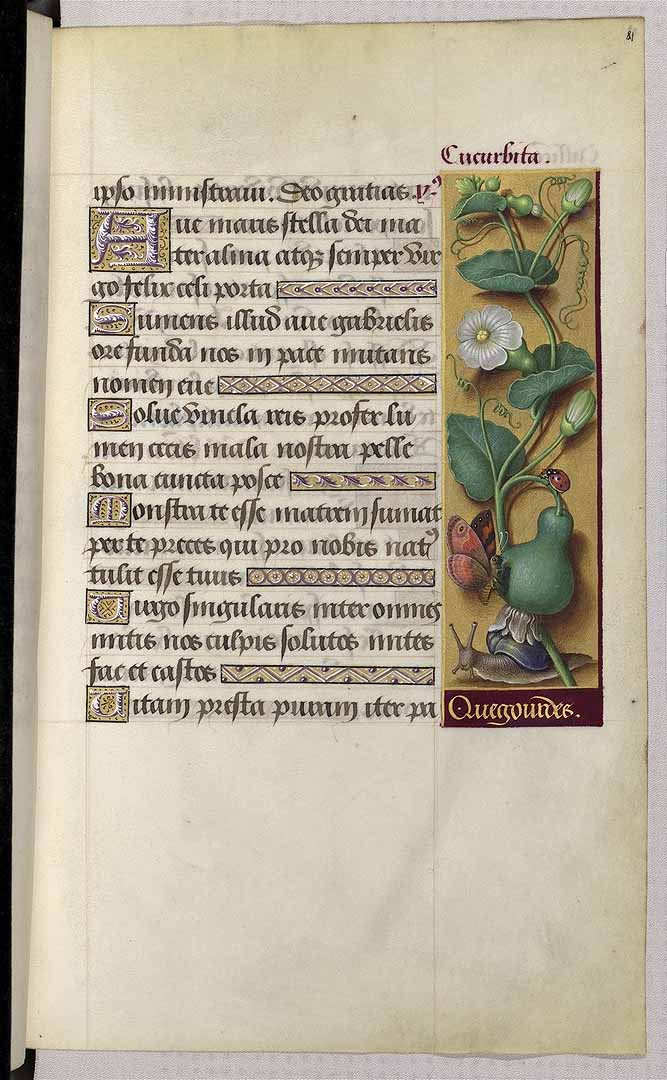 81
Cucurbita.
ipso ministrani. Deo gratias. ys
Aue maris stella dei ma
ter alma atqz semper vir
go felix celi porta
Sumens illud aue gabrielis
ore funda nos in pace mutans
nomen eue
Solue vincla reis profer lu
men cecis mala nostra pelle
bona cuncta posce
Monstra te esse matrem sumat
per te preces qui pro nobis natꝰ
tulit esse tuus
Uirgo singularis inter omnes
mitis nos culpis solutos mites
fac et castos
Uitam presta puram iter pa
Quegourdes.